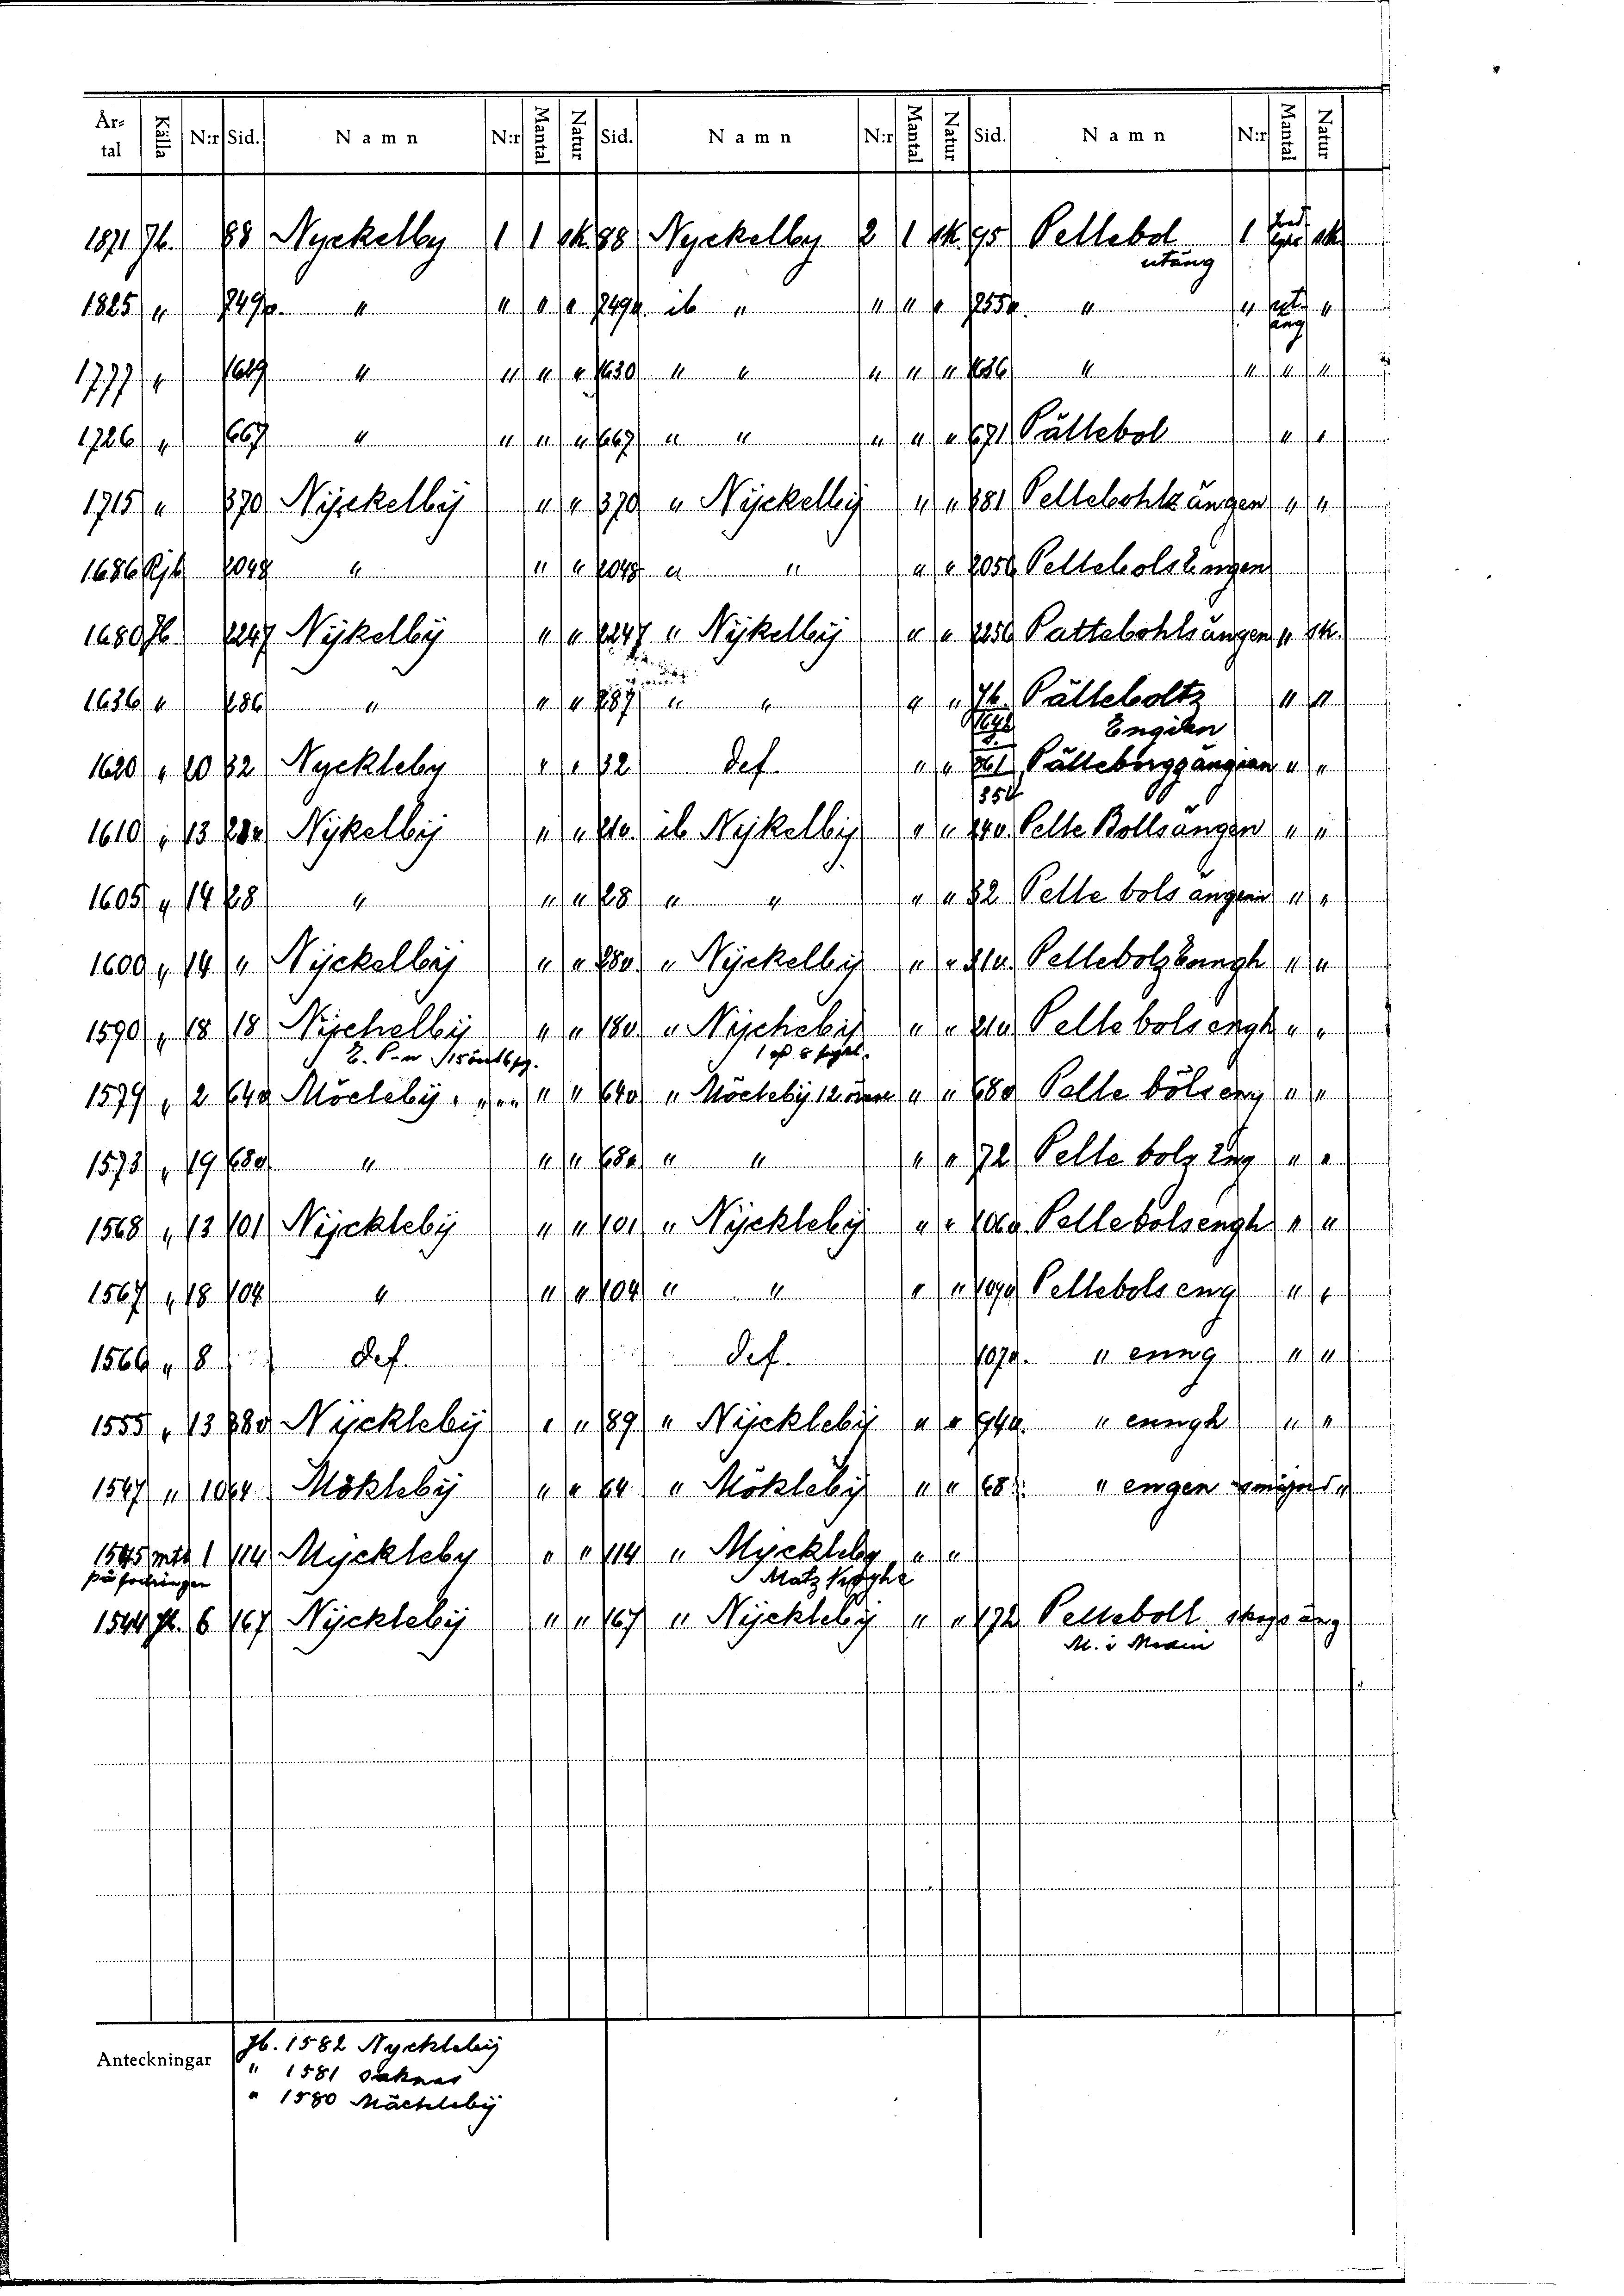 År-tal Källa N:r Sid. Namn N:r Mantal Natur Sid. Namn N:r Mantal Natur Sid. Namn N:r Mantal Natur
1871 Jb. 88 Nyckelby 1 1 sk. 88 Nyckelby 2 1 sk. 95 Pellebol 1 sk
utäng
1825 " 749v. " " " " 749v. ib " " " " 755v. " " "
äng
1777 " 629 " " " " 630 " " " " " 636 " " " "
1726 " 667 " " " " 667 " " " " " 671 Pällebol " "
1715 " 370 Nÿckelbÿ " " 370 " Nÿckelbÿ " " 381 Pellebohlzängen " "
1686 Rjb 2048 " " " 2048 " " " " 2056 Pellebolsängen
1680 Jb. 2247 Nÿkelbÿ " " 2247 " Nÿkelbÿ " " 2256 Pattebohlsängen " sk.
1636 " 286 " " " 287 " " " " 76 Pälleboltz " "
Engiän
1620 " 20 32 Nyckleby " " 32 def. " " Pälleborggängian " "
354
1610 " 13 Nÿkelbÿ " " ib Nÿkelbÿ " " Pelle Bollsängen " "
1605 " 14 28 " " " 28 " " " " 32 Pelle bols ängenn " "
1600 " 14 " Nÿckelbÿ " " " Nÿckelbÿ " " Pellebolz " "
1590 " 18 18 Nÿchelbÿ " " 18v " Nÿchebÿ " " 21v Pelle bolsengh " "
1579 " 2 64v Möclebÿ " " 64v " Möclebÿ 12 " " 68v Palle bölseng " "
1573 " 19 68v " " " 68v " " " " 72 Pelle bolz Eng " "
1568 " 13 101 Nÿcklebÿ " " 101 " Nÿcklebÿ " " 106v Pellebolsengh " "
1567 " 18 104 " " " 104 " " " " 109v Pellebols eng " "
1566 " 8 def. def. 107v. " enng " "
1555 " 13 Nÿcklebÿ " " 89 " Nÿcklebÿ " " 94v. " enngh " "
1547 " 10 64 Möklebÿ " " 64 " Möklebÿ " " 68 " engen
1545 mtl 1 114 Myckleby " " 114 " Myckleby " "
Matz
1544 Jb. 6 167 Nÿcklebÿ " " 167 " Nÿcklebÿ " " 172 Pelleboll skogsäng
M. i
Anteckningar Jb. 1582 Nycklebÿ
" 1581 saknas
" 1580 Mäcklebÿ